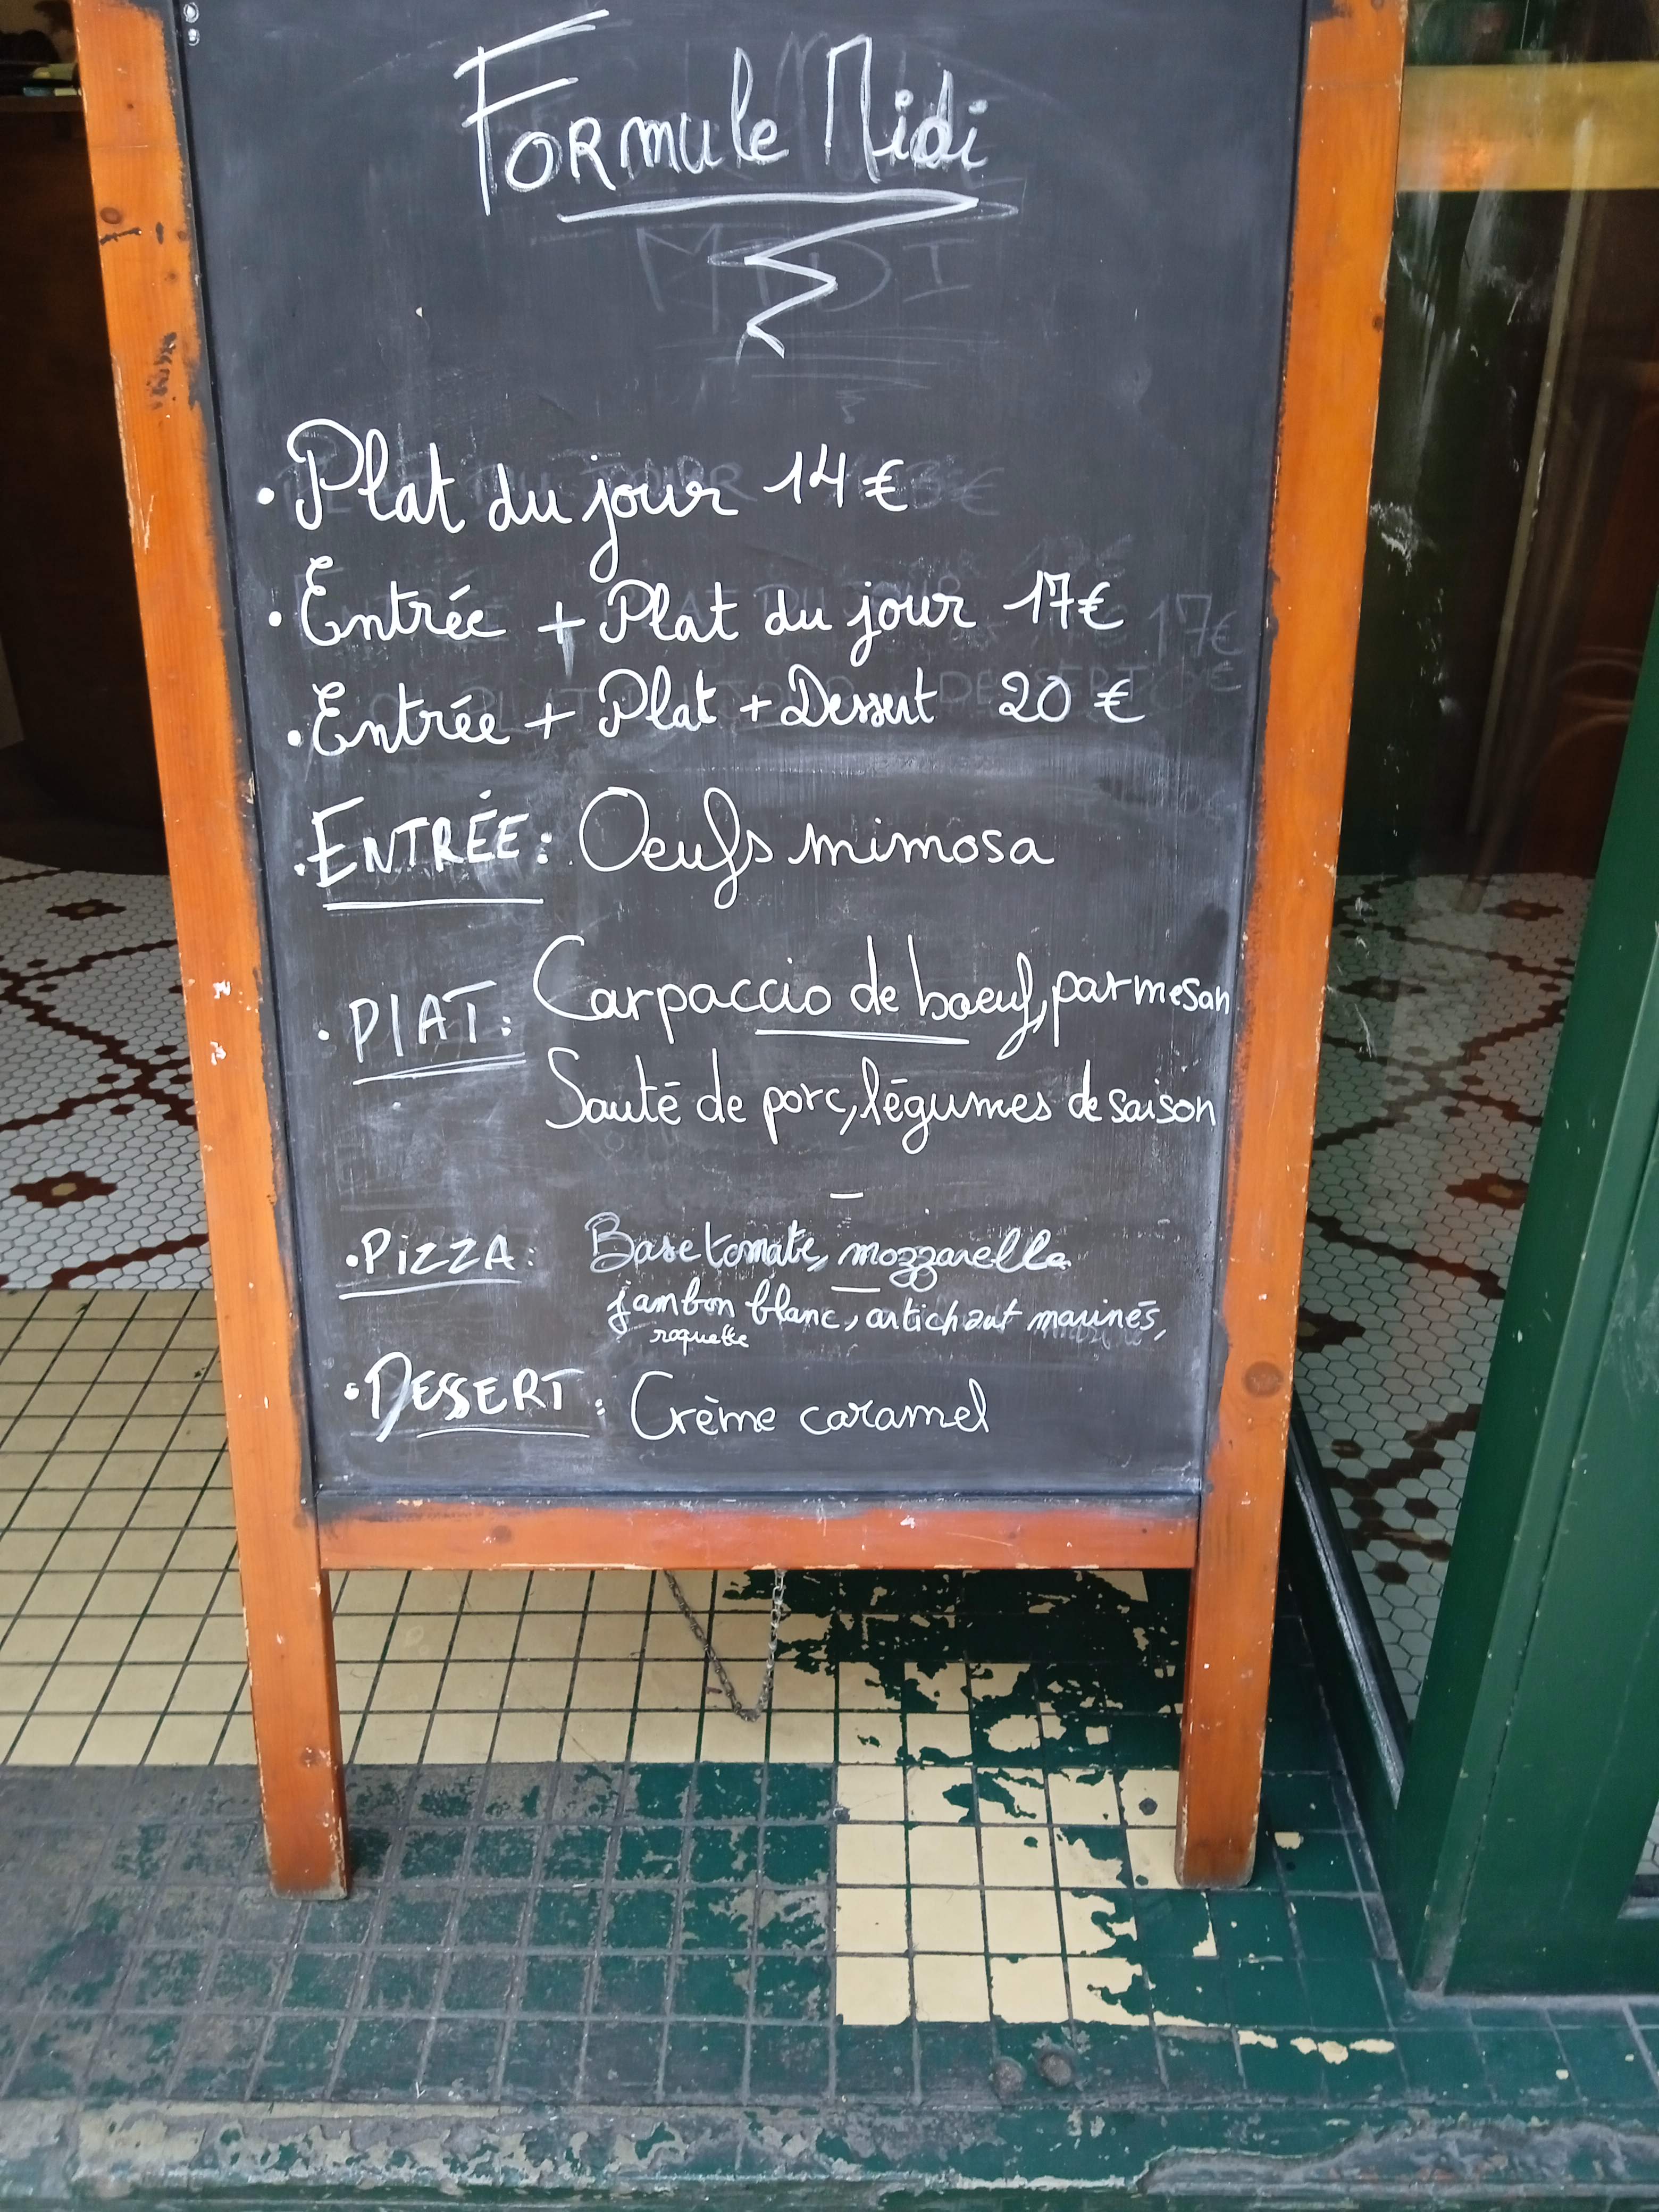 Formule Midi
MIDI
• Plat du jour 14€
• Entrée + Plat du jour 17€
17€
• Entrée + Plat + Dessert 20 €
• ENTRÉE : Oeufs mimosa
• PLAT : Carpaccio de boeuf, parmesan
Sauté de porc, légumes de saison
• PIZZA : Base tomate, mozzarella
jambon blanc, artichaut marinés,
roquette
• DESSERT : Crème caramel